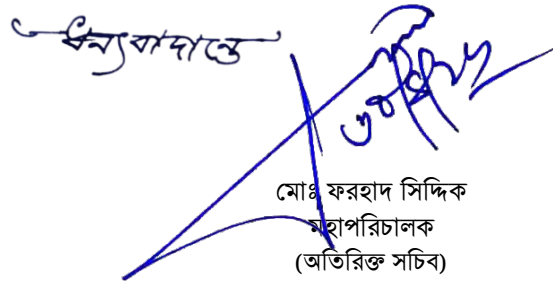 ধন্যবাদান্তে
মোঃ ফরহাদ সিদ্দিক
মহাপরিচালক
(অতিরিক্ত সচিব)